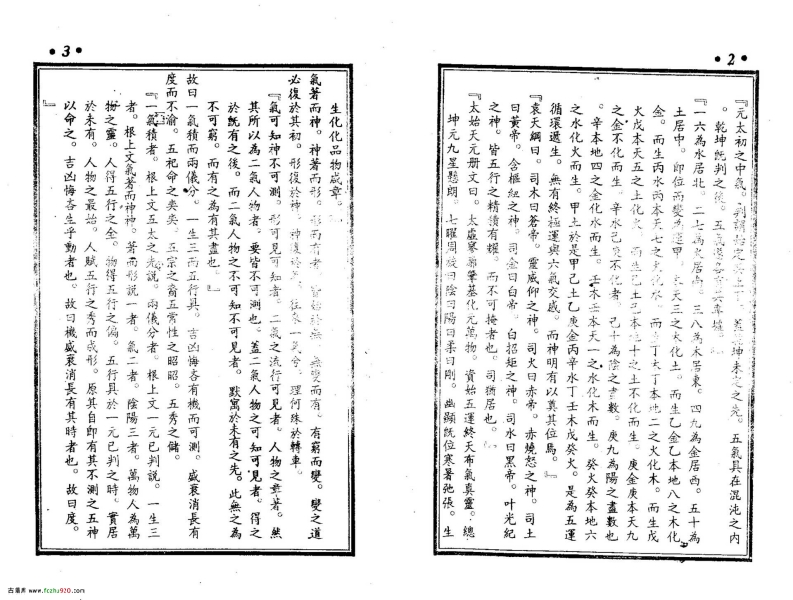 •2•
『元太初之中氣。判諸
坤未立之先。五氣具在混沌之內
。乾坤既判之後。五氣還各
『一六為水居北。二七為火居南。三八為木居東。四九為金居西。五十為
土居中。即位而變為運甲
本天三之木化土。而生乙金乙本地八之木化
金。而生丙水丙本天七之火化水。而生丁木丁本地二之火化木。而生戊
火戊本天五之土化火。而生己土己本地十之土不化而生。庚金庚本天九
之金不化而生。辛水己
不化者。己十為陰之盡數。庚九為陽之盡數也
。辛本地四之金化水而生。壬木壬本天一之水化木而生。癸火癸本地六
之水化火而生。甲土於是甲己土乙庚金丙辛水丁壬木戊癸火。是為五運
循環遞生。無有終極運與六氣交感。而神明有以奠其位焉。』
『袁天鋼曰。司木曰蒼帝。靈威仰之神。司火曰赤帝。赤熛怒之神。司土
曰黃帝。含樞紐之神。司金曰白帝。白招矩之神。司水曰黑帝。叶光紀
之神。皆五行之精領有耀。而不可掩者也。司猶居也。』
『太始天元册文曰。太虛寥廓肇基化元萬物。資始五運終天布氣真靈。總
坤元九星懸朗。七曜周旋曰陰曰陽曰柔曰剛。幽顯既位寒暑弛張。生
•3•
生化化品物咸章。
氣著而神。神著而形。形而有者。皆始於無。無變而有。有窮而變。變之道
必復於其初。形復於神。神復於氣。往來一氣兮。理何殊於轉車。
『氣可知神不可測。形可見可知者。二氣之流行可見者。人物之彰著。然
其所以為二氣人物者。要皆不可測也。蓋二氣人物之可知可見者。得之
於既有之後。而二氣人物之不可知不可見者。默寓於未有之先。此無之為
不可窮。而有之為有其盡也。』
故曰一氣積而兩儀分。一生三而五行具。吉凶悔吝有機而可測。盛衰消長有
度而不渝。五祀命之矣矣。五宗之裔五常性之昭昭。五秀之儲。
『一氣積者。根上文五太之先說。兩儀分者。根上文一元已判說。一生三
者。根上文氣著而神神。著而形說一者。氣二者。陰陽三者。萬物人為萬
物之靈。人得五行之全。物得五行之偏。五行具於一元已判之時。實居
於未有。人物之最始。人賦五行之秀而成形。原其自即有其不測之五神
以命之。吉凶悔吝生乎動者也。故曰機盛衰消長有其時者也。故曰度。
』
古易库 www.fczhu920.com